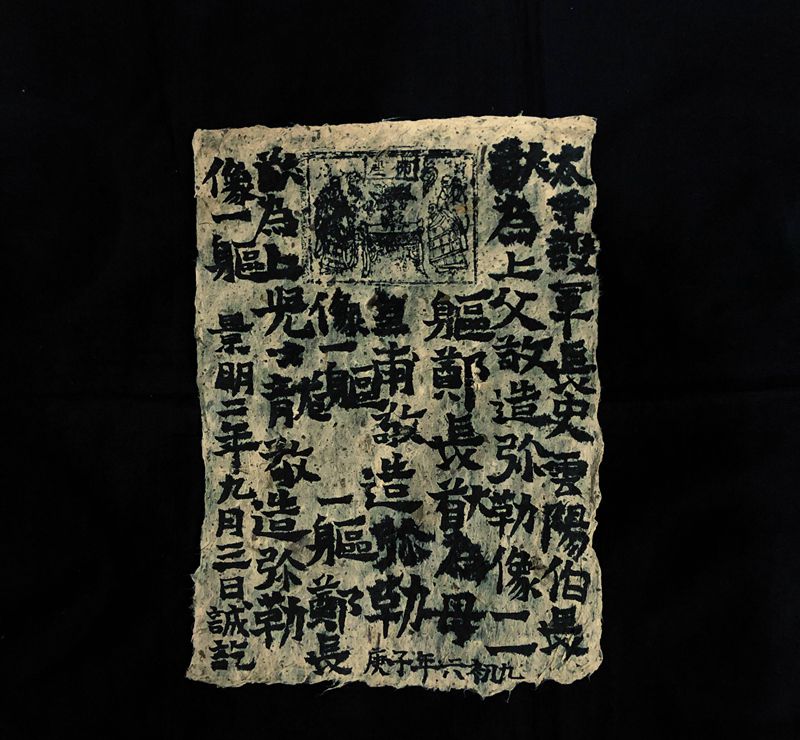 太守設軍長史雲陽伯長
猷為亡父敬造弥勒像二
軀鄭長猷為母
皇甫敬造弥勒
像一軀一軀鄭長
猷為亡児士龍敬造弥勒
像一軀景明二年九月三日誠訖
庚子年六初九